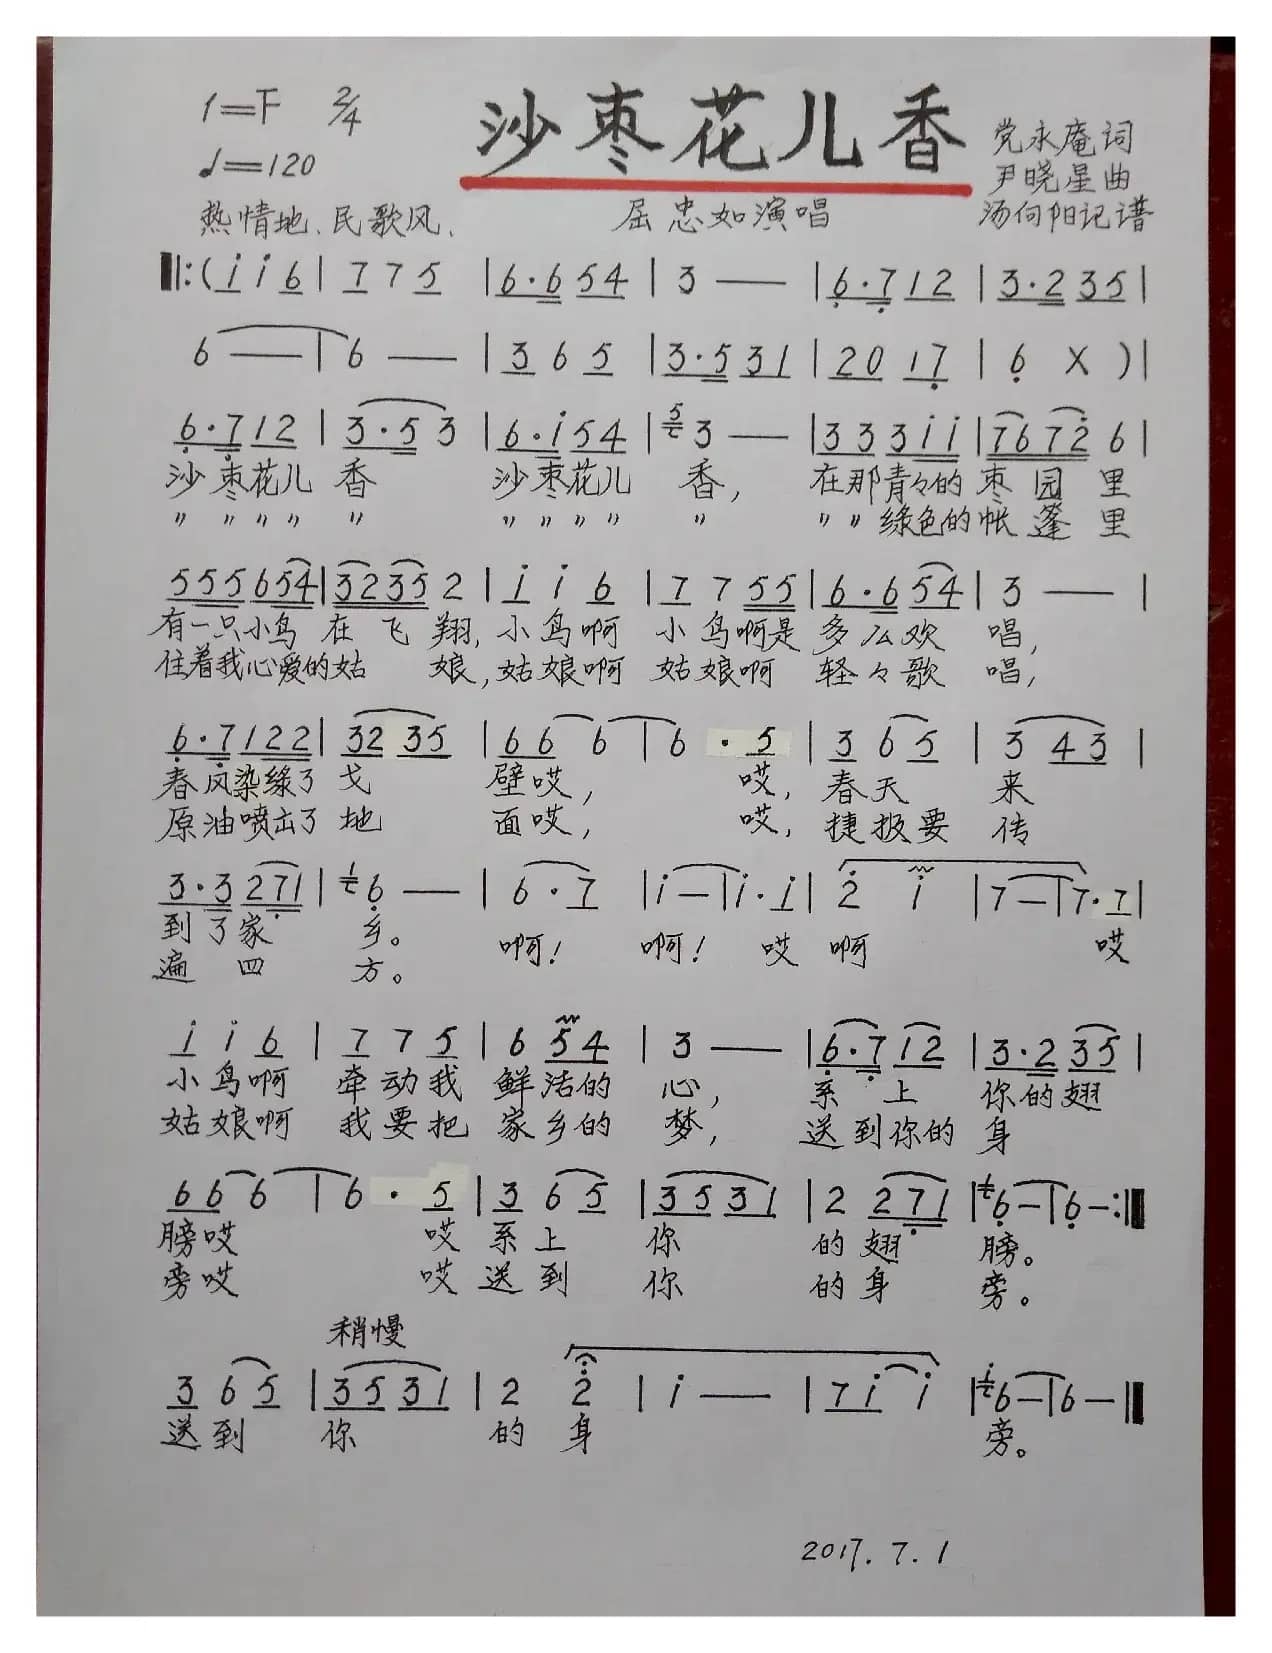 1=F 2/4 沙枣花儿香 党永庵词
♩=120 尹晓星曲
热情地、民歌风、 屈忠如演唱 汤向阳记谱
‖:(i i 6 | 7 7 5 | 6·6 54 | 3 — | 6·7 12 | 3·2 35 |
6 — | 6 — | 3 6 5 | 3·5 31 | 20 17 | 6 X )|
6·7 12 | 3·5 3 | 6·i 54 | 5 3 — | 33 3ii | 7672 6 |
沙枣花儿 香 沙枣花儿 香, 在那青々的枣园里
〃 〃 〃 〃 〃 〃 〃 〃 〃 〃 〃 〃 绿色的帐篷里
555 654 | 3235 2 | i i 6 | 7 7 55 | 6·6 54 | 3 — |
有一只小鸟 在飞翔, 小鸟啊 小鸟啊是 多么欢 唱,
住着我心爱的姑 娘, 姑娘啊 姑娘啊 轻々歌 唱,
6·7 122 | 32 35 | 66 6 | 6 · 5 | 3 6 5 | 3 43 |
春风染绿了 戈 壁哎, 哎, 春天 来
原油喷出了 地 面哎, 哎, 捷报要 传
3·3 271 | 1 6 — | 6·7 | i — | i·i | 2 i | 7 — | 7·7 |
到了家 乡。 啊! 啊! 哎 啊 哎
遍 四 方。
i i 6 | 7 7 5 | 6 54 | 3 — | 6·7 12 | 3·2 35 |
小鸟啊 牵动我 鲜活的 心, 系 上 你的翅
姑娘啊 我要把 家乡的 梦, 送到你的 身
66 6 | 6 · 5 | 3 6 5 | 35 31 | 2 271 | 1 6 — | 6 — :‖
膀哎 哎 系上 你 的翅 膀。
旁哎 哎 送到 你 的身 旁。
稍慢
3 6 5 | 35 31 | 2 2 | i — | 7i i | i 6 — | 6 — ‖
送到 你 的 身 旁。
2017. 7. 1